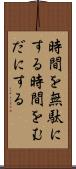 時間を無駄に
する時間をむ
だにする